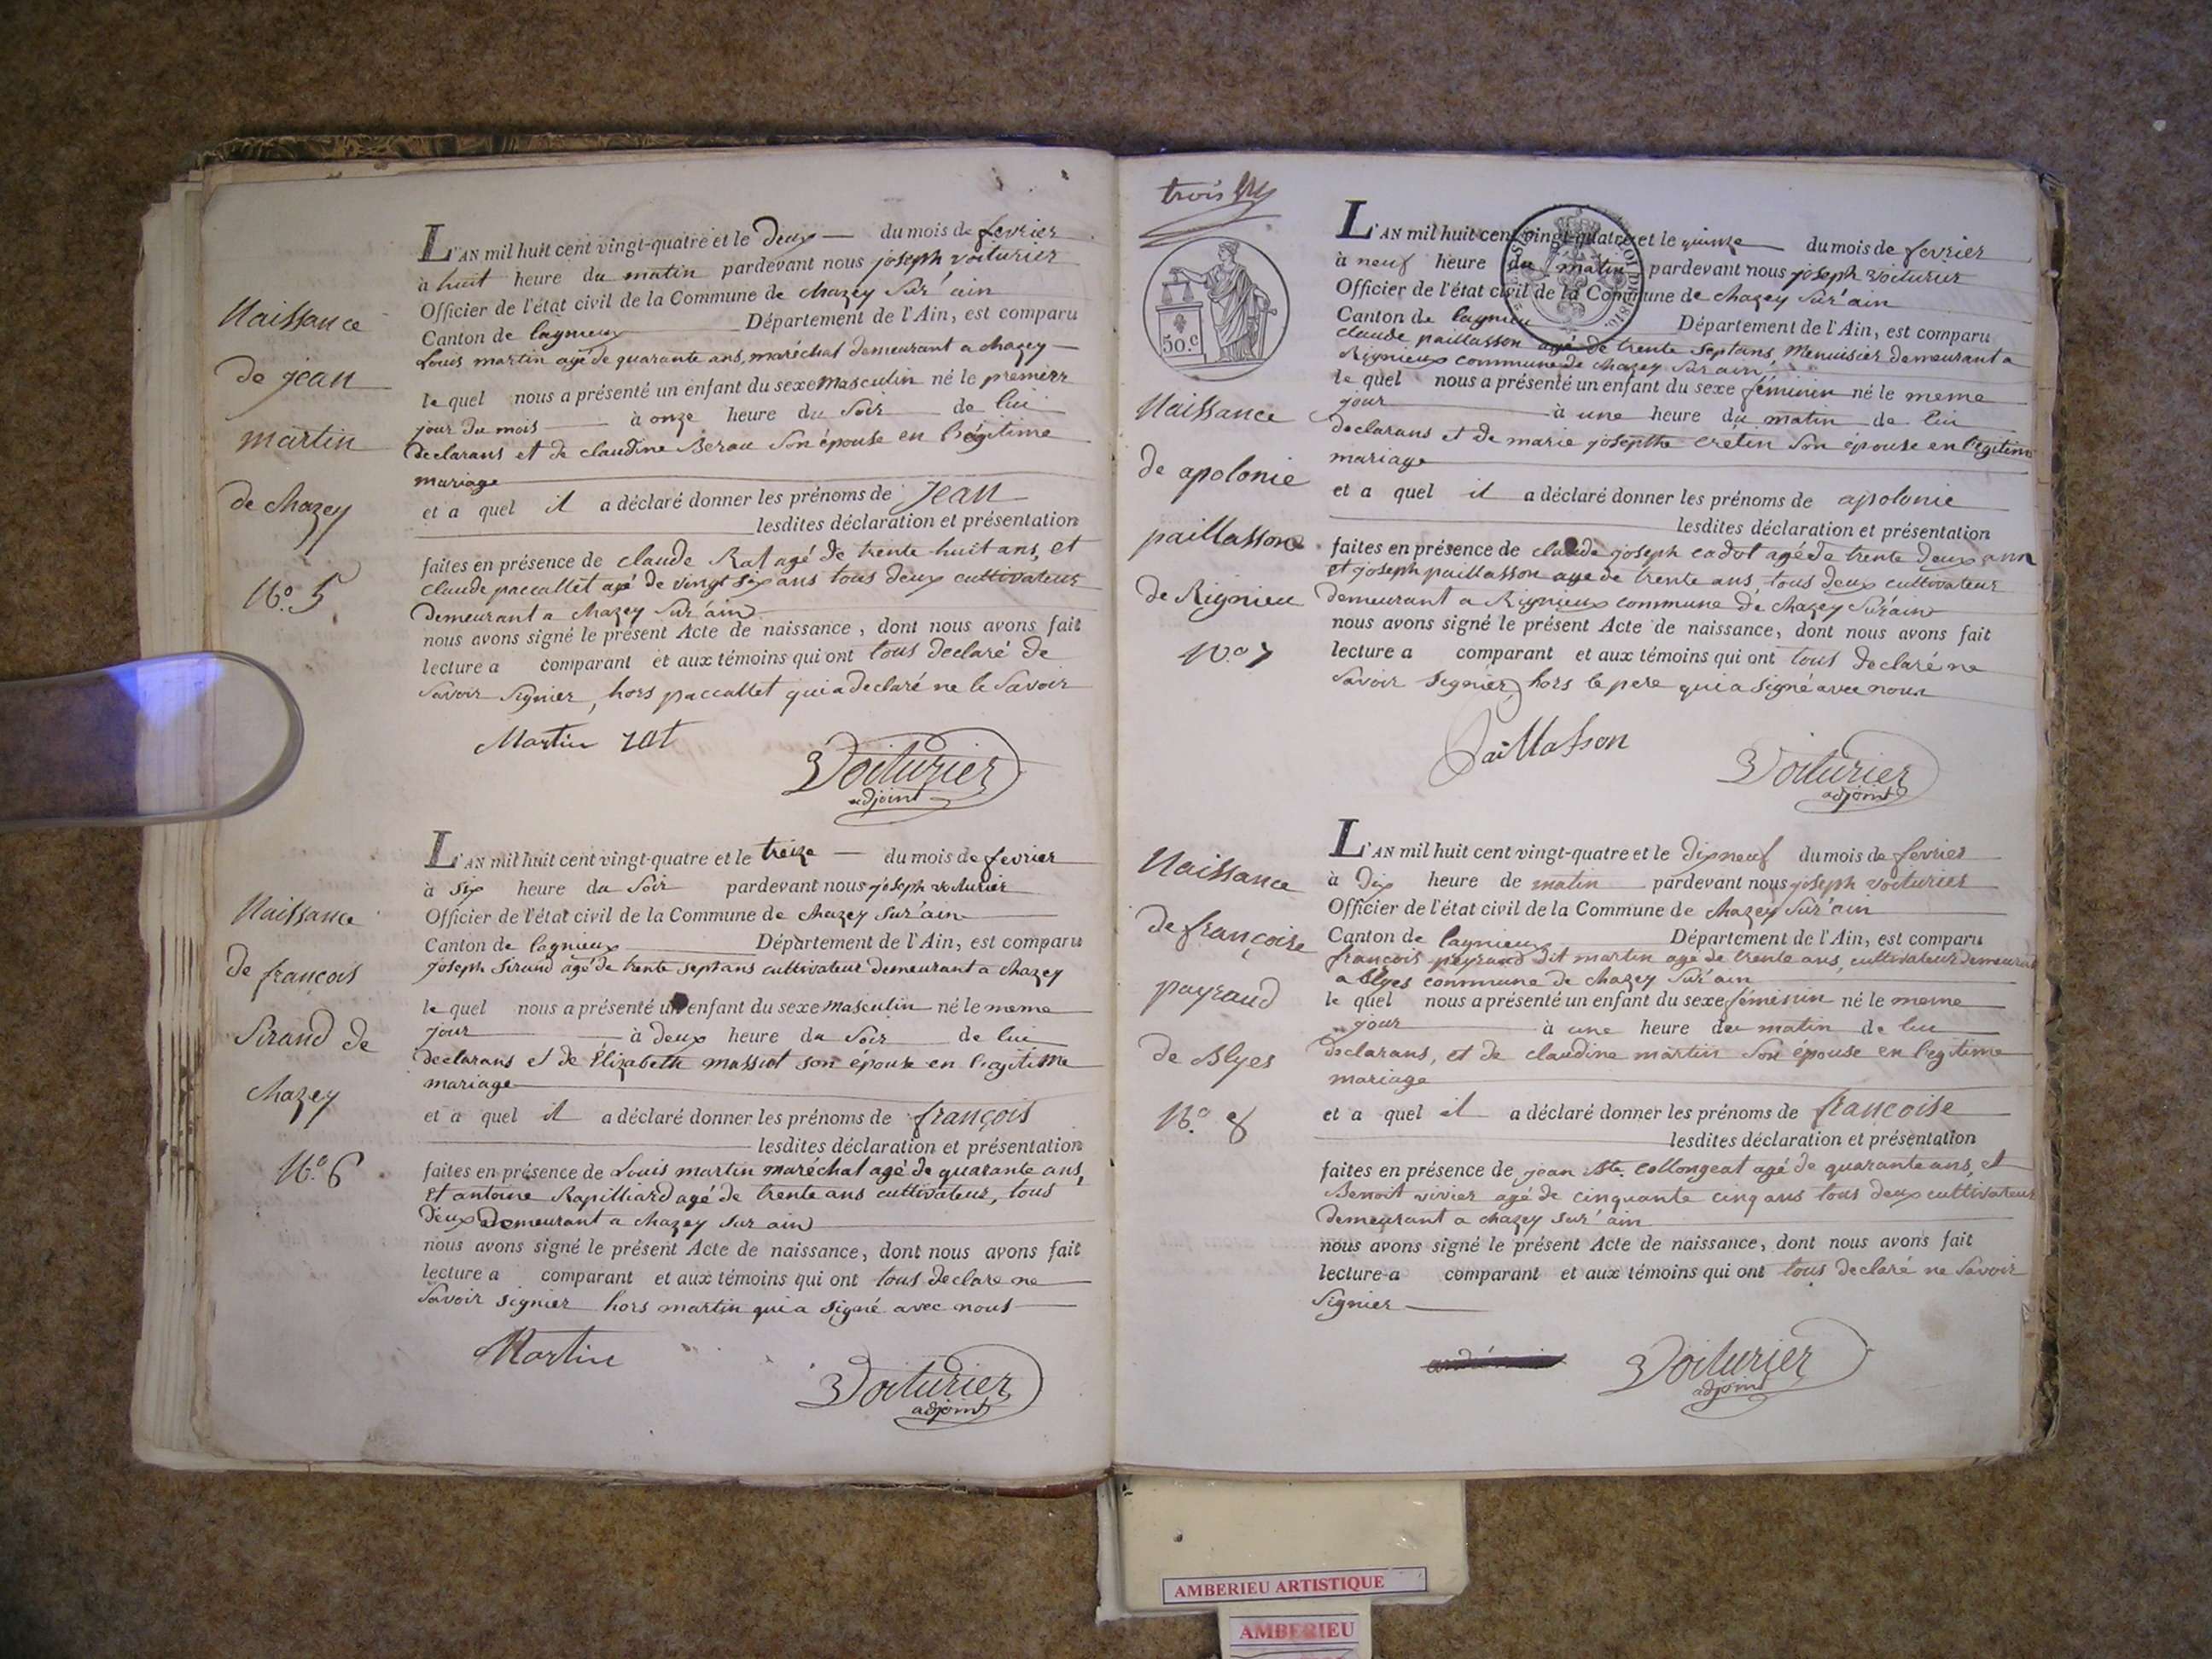 L'AN mil huit cent vingt-quatre et le deux du mois de fevrier
à huit heure du matin pardevant nous joseph voiturier
Officier de l'état civil de la Commune de chazey sur'ain
Canton de lagnieux Département de l'Ain, est comparu
Louis martin agé de quarante ans, maréchal demeurant a chazey
le quel nous a présenté un enfant du sexe masculin né le premierr
jour du mois à onze heure du soir de lui
declarans et de claudine Berau son épouse en legitime
mariage
et a quel il a déclaré donner les prénoms de Jean
lesdites déclaration et présentation
faites en présence de claude Rat agé de trente huit ans, et
claude paccallet agé de vingt six ans tous deux cultivateur
demeurant a chazey sur'ain
nous avons signé le présent Acte de naissance, dont nous avons fait
lecture a comparant et aux témoins qui ont tous declaré de
savoir signier, hors paccallet qui a declaré ne le savoir
Martin rat
Voiturier
adjoint
Naissance
de jean
martin
de chazey
N.o 5
L'AN mil huit cent vingt-quatre et le treize du mois de fevrier
à six heure du soir pardevant nous joseph voiturier
Officier de l'état civil de la Commune de chazey sur'ain
Canton de lagnieux Département de l'Ain, est comparu
joseph sirand agé de trente sept ans cultivateur demeurant a chazey
le quel nous a présenté un enfant du sexe masculin né le meme
jour à deux heure du soir de lui
declarans et de Élizabeth massiot son épouse en legitime
mariage
et a quel il a déclaré donner les prénoms de françois
lesdites déclaration et présentation
faites en présence de Louis martin maréchal agé de quarante ans,
et antoine Rapilliard agé de trente ans cultivateur, tous
deux demeurant a chazey sur ain
nous avons signé le présent Acte de naissance, dont nous avons fait
lecture a comparant et aux témoins qui ont tous declare ne
savoir signier hors martin qui a signé avec nous
Martin
Voiturier
adjoint
Naissance
de francois
Sirand de
chazey
N.o 6
trois
50.c
L'AN mil huit cent vingt-quatre et le quinze du mois de fevrier
à neuf heure du matin pardevant nous joseph voiturier
Officier de l'état civil de la Commune de chazey sur'ain
Canton de lagnieu Département de l'Ain, est comparu
claude paillasson agé de trente sept ans, Menuisier demeurant a
Rignieux commune de chazey sur ain
le quel nous a présenté un enfant du sexe féminin né le meme
jour à une heure du matin de lui
declarans et de marie josepthe cretin son épouse en legitime
mariage
et a quel il a déclaré donner les prénoms de apolonie
lesdites déclaration et présentation
faites en présence de claude joseph cadot agé de trente deux ann
et joseph paillasson age de trente ans tous deux cultivateur
demeurant a Rignieux commune de chazey sur'ain
nous avons signé le présent Acte de naissance, dont nous avons fait
lecture a comparant et aux témoins qui ont tous declaré ne
savoir signier, hors le pere qui a signé avec nous
Paillasson
Voiturier
adjoint
Naissance
de apolonie
paillassone
de Rignieu
N.o 7
L'AN mil huit cent vingt-quatre et le dix neuf du mois de fevrier
à dix heure de matin pardevant nous joseph voiturier
Officier de l'état civil de la Commune de chazey sur'ain
Canton de lagnieux Département de l'Ain, est comparu
francois peyraud dit martin age de trente ans, cultivateur demeurant
a blyes commune de chazey sur'ain
le quel nous a présenté un enfant du sexe féminin né le meme
jour à une heure du matin de lui
declarans, et de claudine martin son épouse en legitime
mariage
et a quel il a déclaré donner les prénoms de francoise
lesdites déclaration et présentation
faites en présence de jean Bte. collongeat agé de quarante ans, et
Benoit vivier agé de cinquante cinq ans tous deux cultivateur
demeurant a chazey sur'ain
nous avons signé le présent Acte de naissance, dont nous avons fait
lecture a comparant et aux témoins qui ont tous declaré ne savoir
signier
Voiturier
adjoint
Naissance
de françoise
payraud
de Blyes
N.o 8
AMBERIEU ARTISTIQUE
AMBERIEU